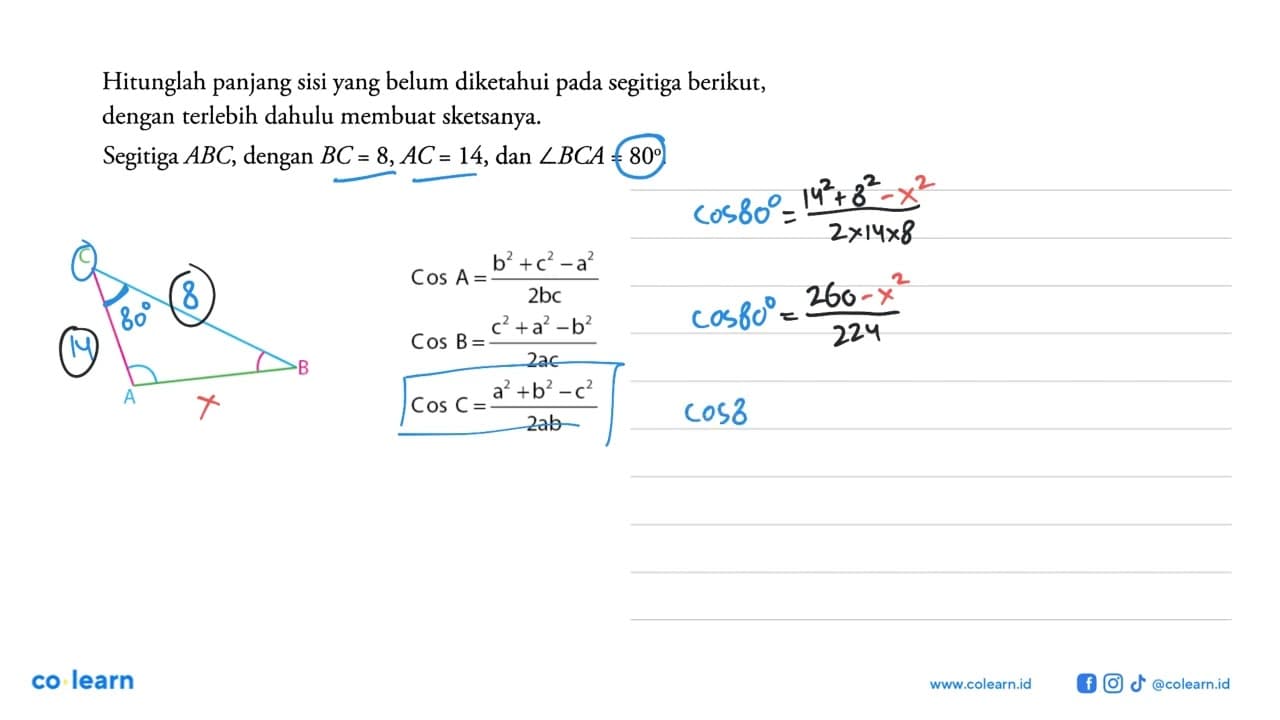 Hitunglah panjang sisi yang belum diketahui pada segitiga berikut,
dengan terlebih dahulu membuat sketsanya.
Segitiga ABC, dengan BC = 8, AC = 14, dan ∠BCA = 80°.
C
8
80°
14
B
A
x
Cos A = (b² + c² − a²) / 2bc
Cos B = (c² + a² − b²) / 2ac
Cos C = (a² + b² − c²) / 2ab
cos80° = (14² + 8² − x²) / 2×14×8
cos80° = (260 − x²) / 224
cos8
co learn
www.colearn.id
@colearn.id